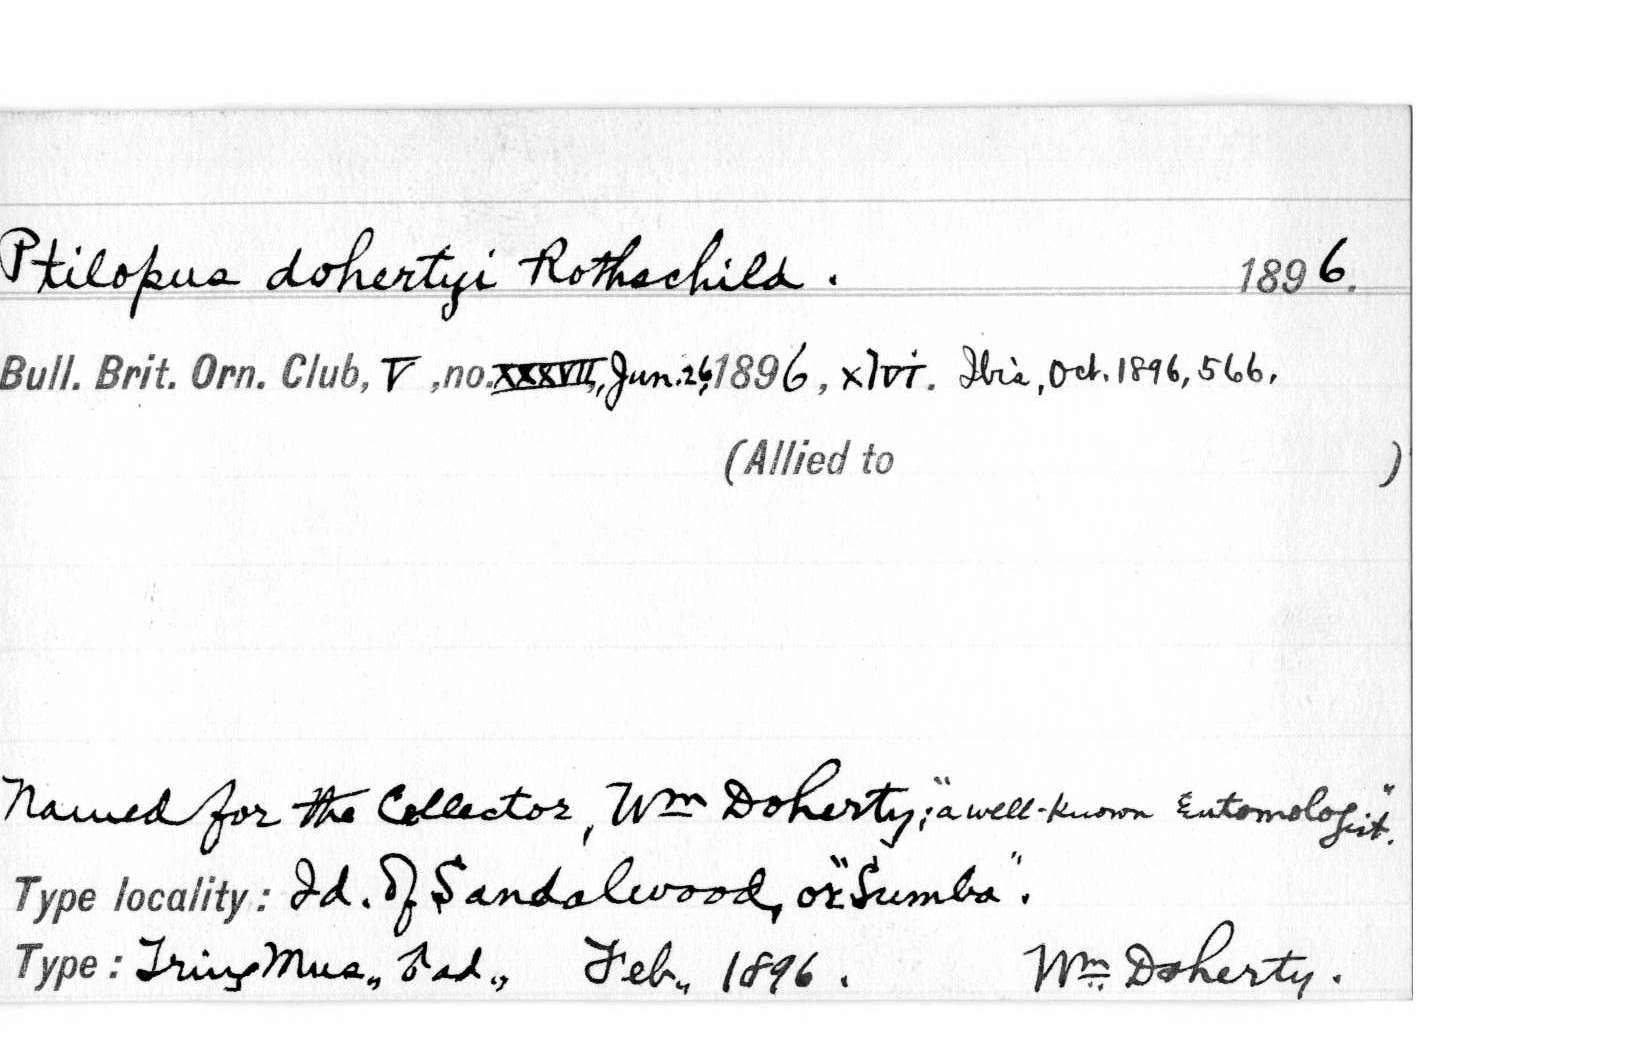 Ptilopus dohertyi Rothschild. 1896.
Bull. Brit. Orn. Club, V, no. XXXVII, Jun. 26, 1896, xlvi. Ibis, Oct. 1896, 566.
(Allied to )
Named for the Collector, Wm Doherty; "a well-known Entomologist".
Type locality: Id. of Sandalwood, or "Sumba".
Type: Tring Mus., ad., Feb., 1896. Wm Doherty.